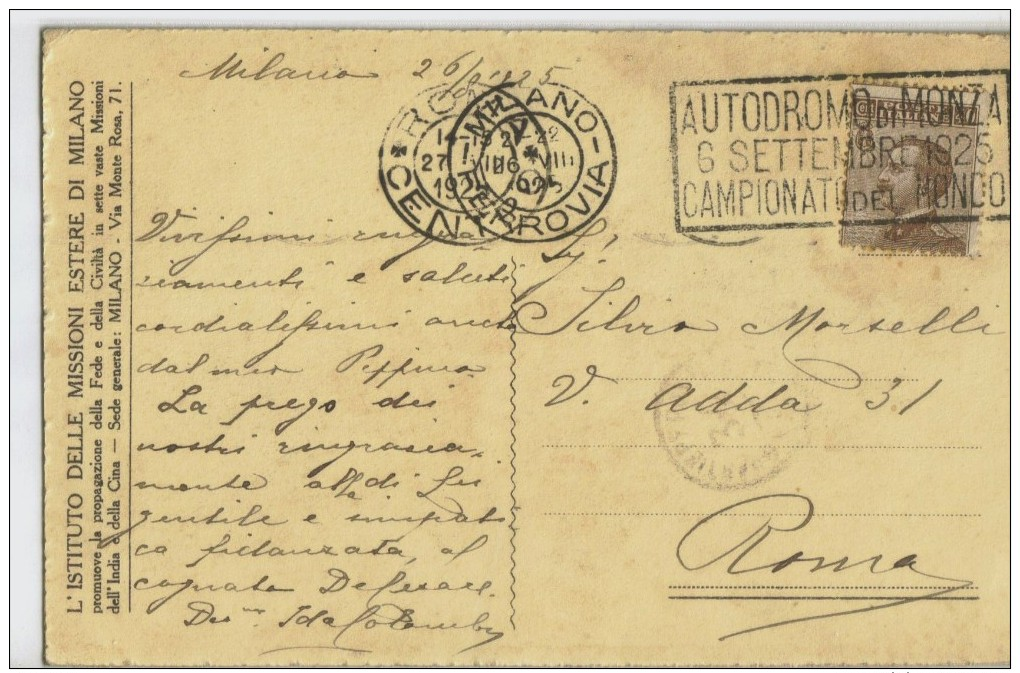 L'ISTITUTO DELLE MISSIONI ESTERE DI MILANO
promuove la propagazione della Fede e della Civiltà in sette vaste Missioni
dell'India e della Cina — Sede generale: MILANO - Via Monte Rosa, 71.
Milano 26/8/1925
MILANO
FERROVIA
ROMA
CENTRO
AUTODROMO DI MONZA
6 SETTEMBRE 1925
CAMPIONATO DEL MONDO
Vivissimi ringra
ziamenti e saluti
cordialissimi anche
dal mio Peppino
La prego dei
nostri ringrazia
mente alla di Lei
gentile e simpati
ca fidanzata, al
cognato De Cesare.
Dev.ma Ida Colombo
Sg.
Silvio Morselli
V. Adda 31
Roma